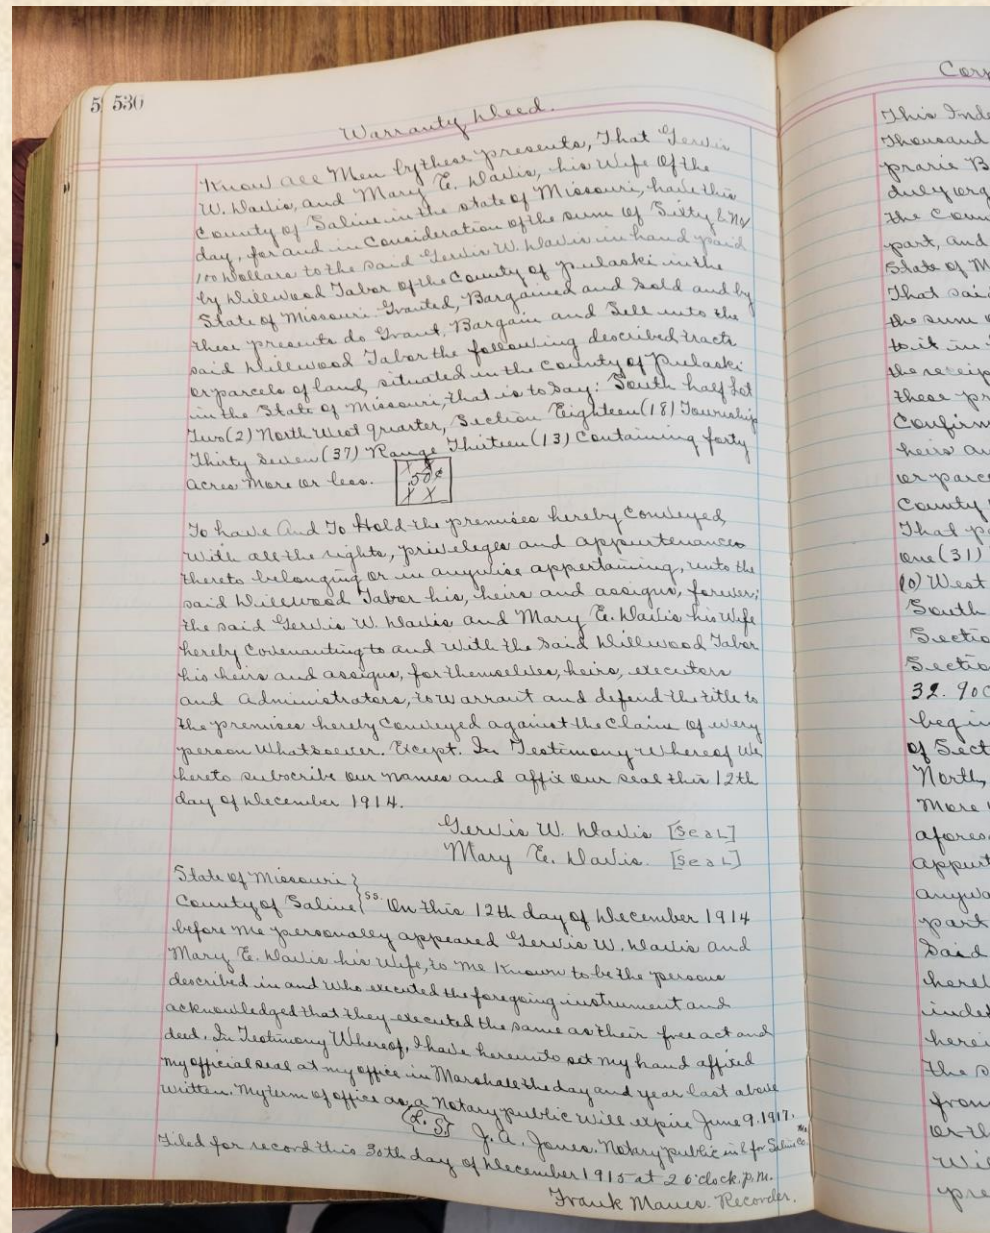 5 530
Warranty Deed.
Know all Men by these presents, That Gervis
W. Davis, and Mary E. Davis, his Wife of the
County of Saline in the state of Missouri, have this
day, for and in Consideration of the sum of Sixty & No/
100 Dollars to the said Gervis W. Davis in hand paid
by Dillwood Tabor of the County of Pulaski in the
State of Missouri Granted, Bargained and Sold and by
these presents do Grant, Bargain and Sell unto the
said Dillwood Tabor the following described tracts
or parcels of land, situated in the County of Pulaski
in the State of Missouri, that is to say: South half Lot
Two (2) North West quarter, Section Eighteen (18) Township
Thirty Seven (37) Range Thirteen (13) Containing forty
acres more or less.
X X
50¢
X X
To have And To Hold the premises hereby Conveyed,
With all the rights, privileges and appurtenances
thereto belonging or in anywise appertaining, unto the
said Dillwood Tabor his, heirs and assigns, forever;
the said Gervis W. Davis and Mary E. Davis his Wife
hereby Covenanting to and With the Said Dillwood Tabor
his heirs and assigns, for themselves, heirs, executors
and Administrators, to warrant and defend the title to
the premises hereby Conveyed against the Claim of every
person Whatsoever. Except. In Testimony Whereof We
hereto subscribe our names and affix our seal this 12th
day of December 1914.
Gervis W. Davis [Seal]
Mary E. Davis. [Seal]
State of Missouri }
County of Saline } ss. On this 12th day of December 1914
before me personally appeared Gervis W. Davis and
Mary E. Davis his Wife, to me Known to be the persons
described in and Who executed the foregoing instrument and
acknowledged that they executed the same as their free act and
deed. In Testimony Whereof, I have hereunto set my hand affixed
my official seal at my office in Marshall the day and year last above
written. My term of office as a Notary public Will expire June 9. 1917.
(L.S) J. A. Jones. Notary public in & for Saline Co. Mo
Filed for record this 30th day of December 1915 at 2 o'clock. p.m.
Frank Manes. Recorder.
This Inde
Thousand
prarie B
duly org
the Coun
part, and
State of M
That said
the sum
to it in
the receip
these pr
Confirm
heirs an
or parce
County
That p
one (31)
10) West
South
Sectio
Sectio
32. 90
begin
of Sect
North,
more
afores
appurt
anywa
part
Said
hereb
inde
herei
the s
from
or th
Wi
pre